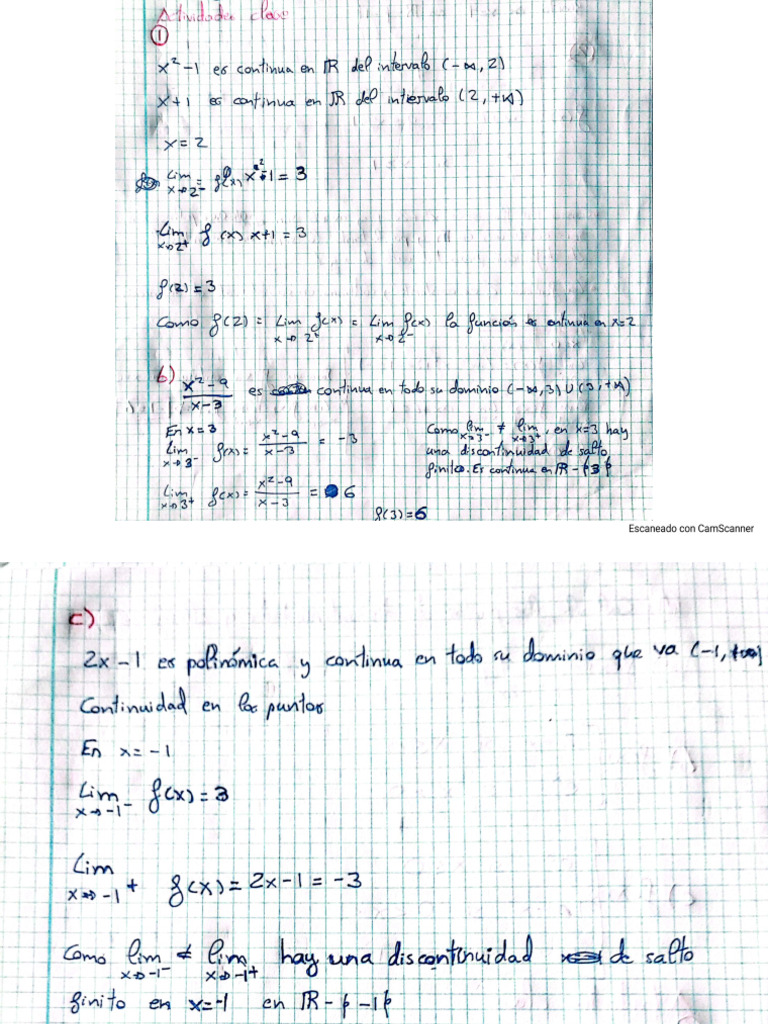 Actividades clase
①
x² - 1 es continua en ℝ del intervalo (-∞, 2)
x + 1 es continua en ℝ del intervalo (2, +∞)
x = 2
lim x→2⁻ = f(x) x² - 1 = 3
Lim x→2⁺ f(x) x+1 = 3
f(2) = 3
Como f(2) = Lim x→2⁺ f(x) = Lim x→2⁻ f(x) la función es continua en x=2
b) x²-9 / x-3 es continua en todo su dominio (-∞, 3) ∪ (3, +∞)
En x=3
Lim x→3⁻ f(x) = x²-9 / x-3 = -3
Lim x→3⁺ f(x) = x²-9 / x-3 = 6
Como lim x→3⁻ ≠ lim x→3⁺, en x=3 hay
una discontinuidad de salto
finito. Es continua en ℝ - {3}
f(3) = 6
Escaneado con CamScanner
c)
2x - 1 es polinómica y continua en todo su dominio que va (-1, +∞)
Continuidad en los puntos
En x = -1
Lim x→-1⁻ f(x) = 3
Lim x→-1⁺ f(x) = 2x-1 = -3
Como lim x→-1⁻ ≠ lim x→-1⁺ hay una discontinuidad de salto
finito en x=-1 en ℝ - {-1}